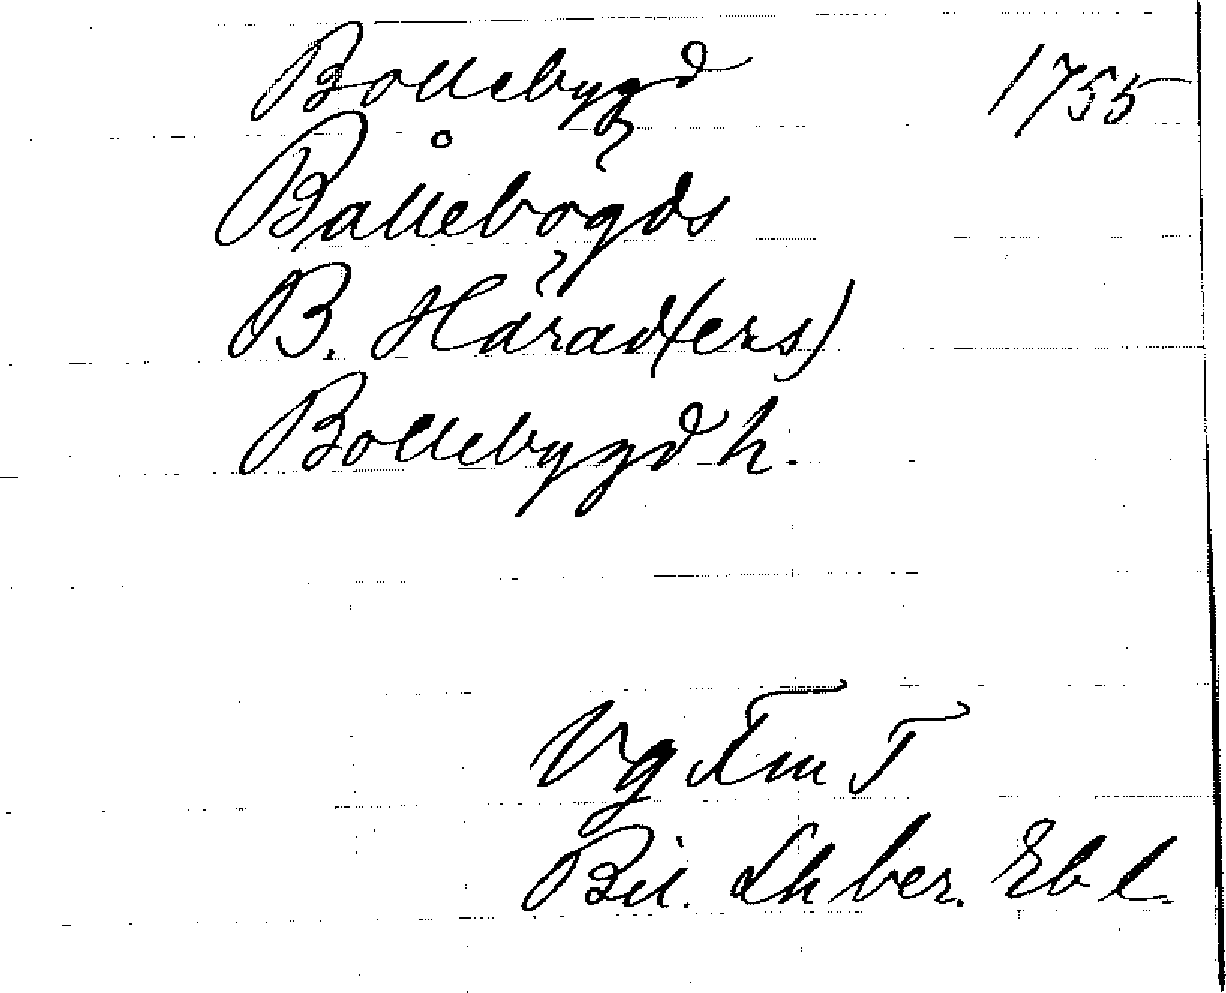 Bollebygd 1755
Bållebögds
B. Härad(ers)
Bollebygd h.
Vg Fm T
Bil. Lh ber. Eb l.